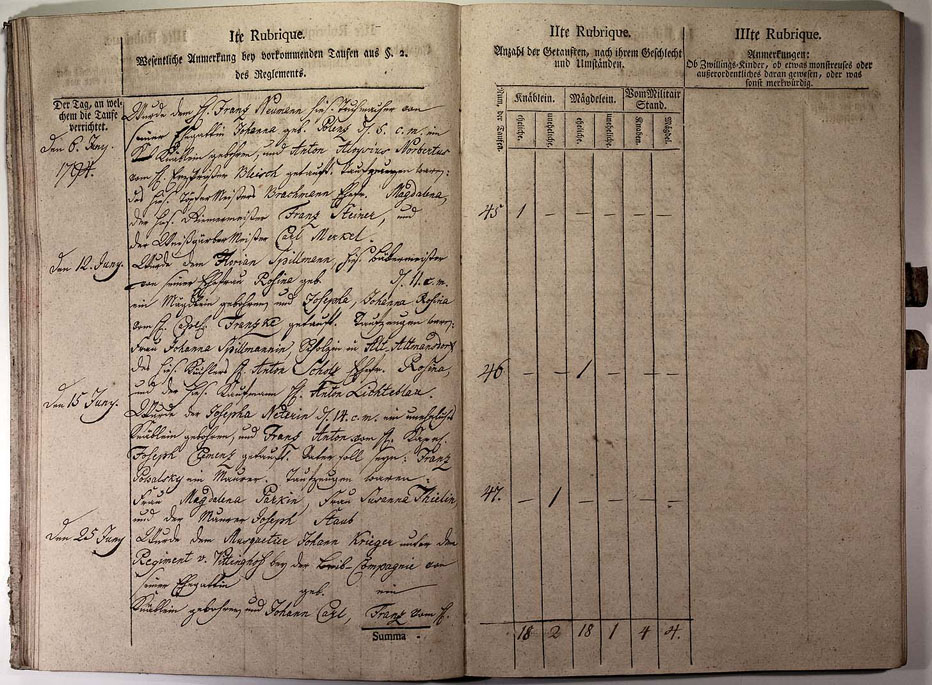 Ite Rubrique.
Wesentliche Anmerkung bey vorkommenden Taufen aus §. 2.
des Reglements.
Der Tag, an wel-
chem die Taufe
verrichtet.
Den 6. Juny.
1794.
Wurde dem H. Franz Neumann
seiner Ehegattin Johanna geb. d. 6. c. m. ein
Knäblein gebohren, und Anton Aloysius Norbertus
vom H. Bleisch getauft. Taufzeugen waren:
des Töpfer Meisters Brachmann Magdalena,
der Franz Steiner, und
der Weißgärber Meister Carl Merkel.
Den 12. Juny.
Wurde dem Florian Spillmann,
von seiner Ehefrau Rosina geb. d. 11. c. m.
ein Mägdlein gebohren, und Josepha, Johanna Rosina
vom H. Franzke getauft. Taufzeugen waren:
Frau Johanna Spillmannin, in Alt Altmansdorf
des H. Anton Scholz Rosina,
und der Kaufmann H. Anton Lichteblau.
Den 15 Juny.
Wurde der Josepha Neterin d. 14. c. m. ein unehelich
Knäblein gebohren, und Franz Anton vom H.
Joseph getauft. Vater soll seyn: Franz
ein Maurer. Taufzeugen waren:
Frau Magdalena Frau Susanna Thielin,
und der Maurer Joseph Staub
Den 25 Juny
Wurde dem Musquetier Johann Krieger unter dem
Regiment v. Vittinghof bey der Leib Compagnie von
seiner Ehegattin geb. ein
Knäblein gebohren, und Johann Carl, Franz vom H.
Summa
IIte Rubrique.
Anzahl der Getauften, nach ihrem Geschlecht
und Umständen.
Num. der Taufen
Knäblein.
Mägdelein.
Vom Militair
Stand.
eheliche.
uneheliche.
eheliche.
uneheliche.
Knaben.
Mägdel.
45 1 – – – – –
46 – – 1 – – –
47. – 1 – – – –
18 2 18 1 4 4.
IIIte Rubrique.
Anmerkungen:
Ob Zwillings-Kinder, ob etwas monstreuses oder
außerordentliches daran gewesen, oder was
sonst merkwürdig.